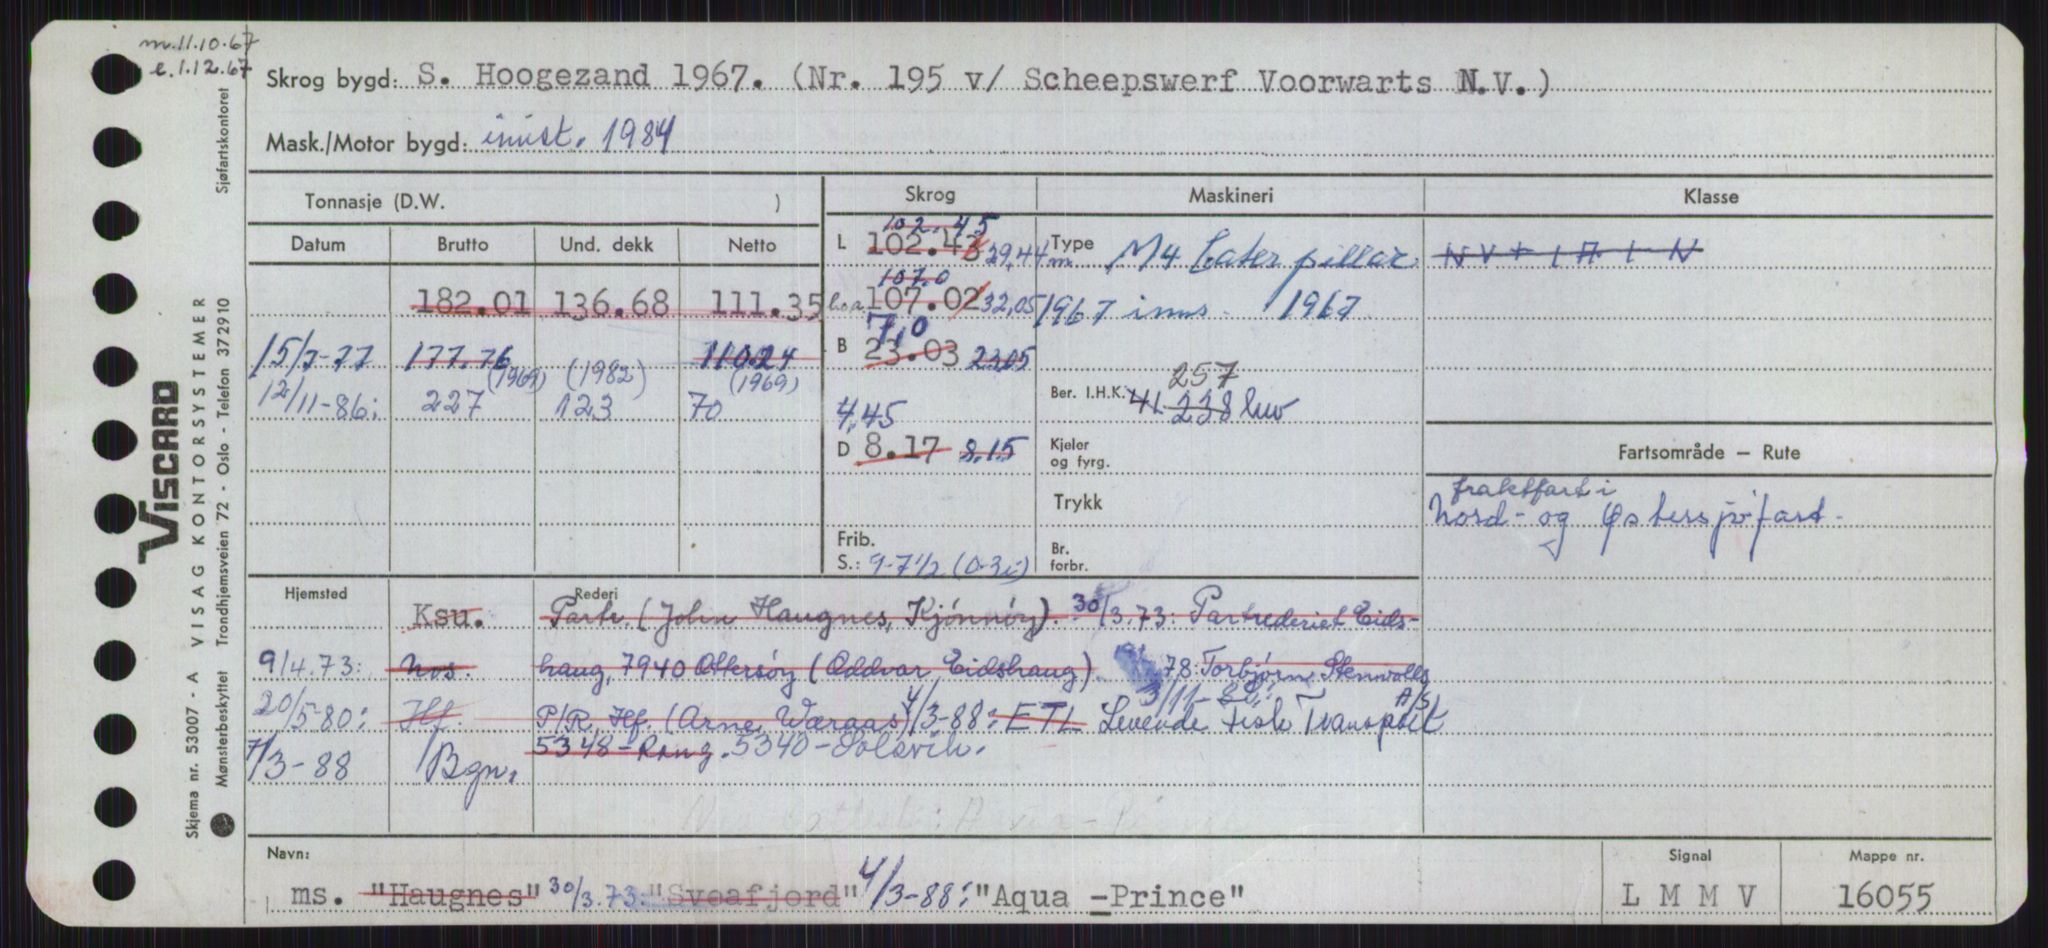 m. 11.10.67
e. 1.12.67
Skrog bygd: S. Hoogezand 1967. (Nr. 195 v/ Scheepswerf Voorwarts N.V.)
Mask./Motor bygd: innst. 1984
Tonnasje (D.W. )
Skrog
Maskineri
Klasse
Datum Brutto Und. dekk Netto
102.45
L 102.43 29,44 m
Type M4 Caterpillar
182.01 136.68 111.35
107.0
l.o.a. 107.02 32,05
1967 inns. 1967
15/7-77 177.76 110.24
7,0
B 23.03 23.05
(1969) (1982) (1969)
12/11-86: 227 123 70
257
Ber. I.H.K. 238 kw
4,45
D 8.17 8.15
Kjeler og fyrg.
Fartsområde – Rute
Trykk
fraktfart i
Nord- og Østersjøfart.
Frib.
S.: 9-7 1/2 (0-3 )
Br. forbr.
Hjemsted
Rederi
Ksu. Partr. (John Haugnes, Kjønnøy). 30/3.73: Partrederiet Eids-
9/4.73: Nos. haug, 7940 Ottersøy (Oddvar Eidshaug). 78: Torbjørn Stenvolls
3/11-86:
20/5-80: Hf. P/R, Hf. (Arne Wæraas) 4/3-88: ETL Levende Fisk Transport A/S
5348-Rong. 5340-Solsvik.
7/3-88 Bgn.
Navn:
ms. "Haugnes" 30/3.73: "Sveafjord" 4/3-88: "Aqua -Prince"
Signal
L M M V
Mappe nr.
16055
Sjøfartskontoret
VISCARD
VISAG KONTORSYSTEMER
Trondhjemsveien 72 - Oslo - Telefon 372910
Skjema nr. 53007 - A
Mønsterbeskyttet